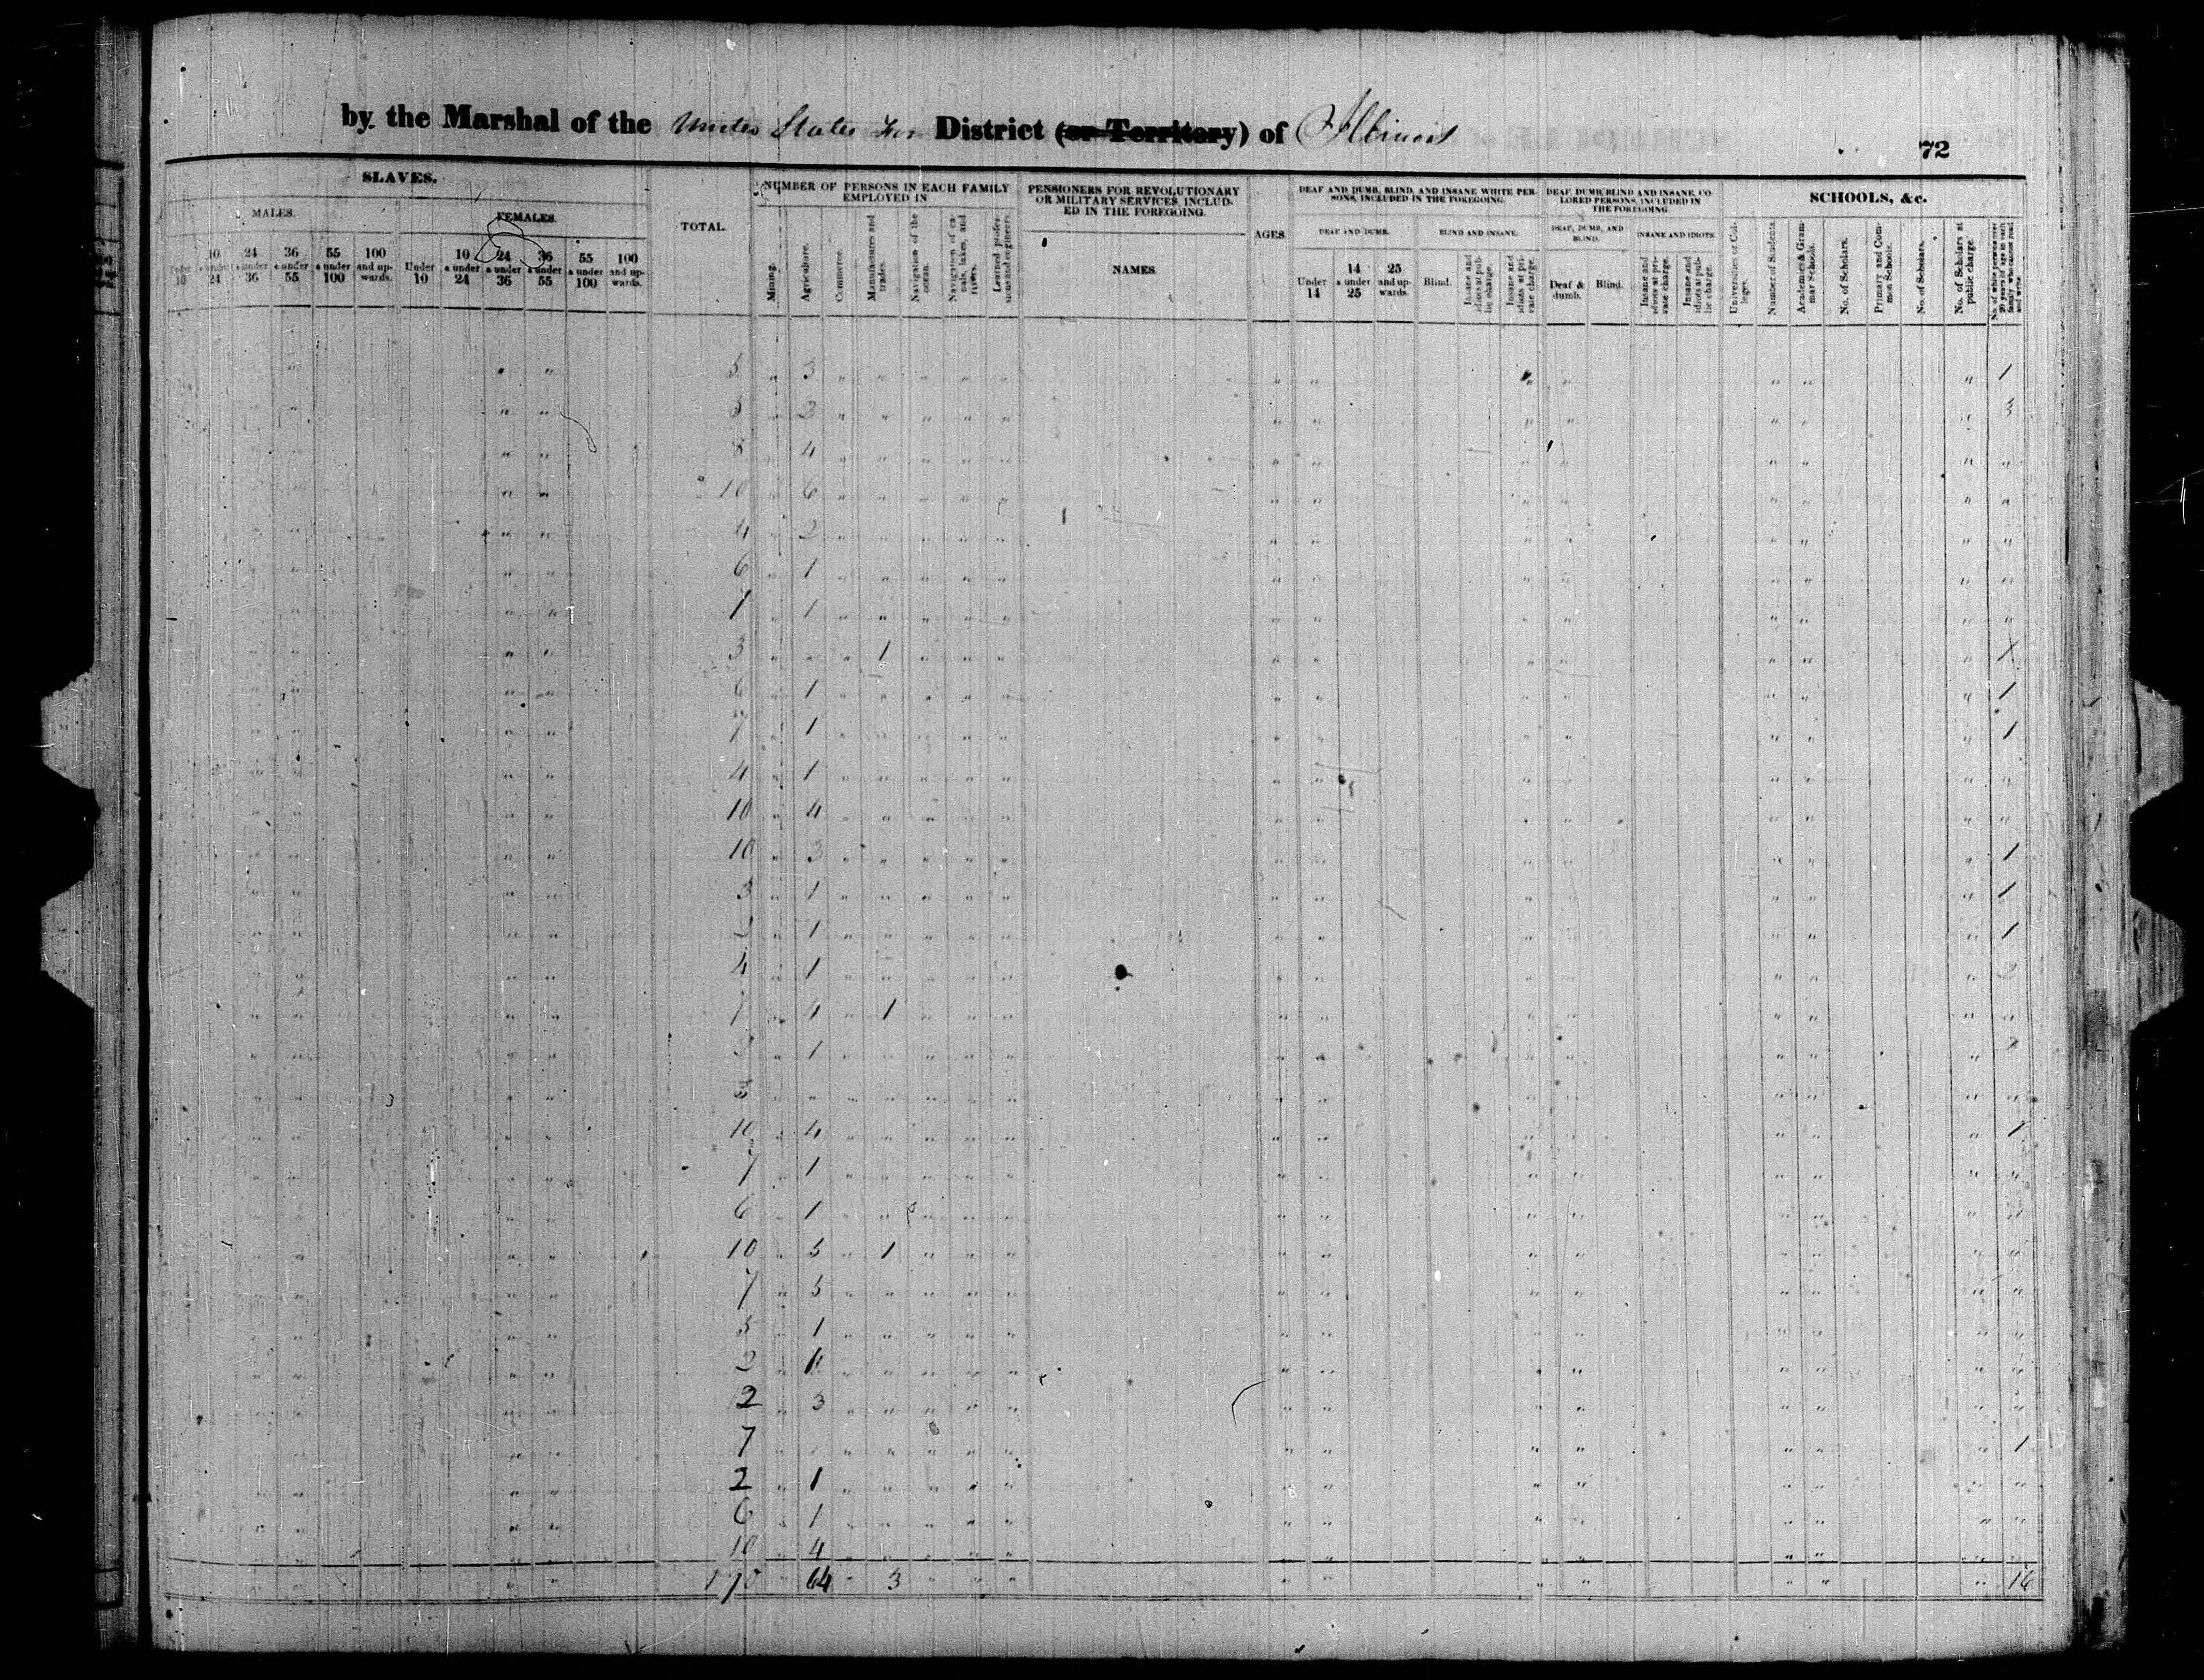 by the Marshal of the United States for District (or Territory) of Illinois
72
SLAVES.
TOTAL.
NUMBER OF PERSONS IN EACH FAMILY EMPLOYED IN
PENSIONERS FOR REVOLUTIONARY OR MILITARY SERVICES, INCLUDED IN THE FOREGOING.
DEAF AND DUMB, BLIND, AND INSANE WHITE PERSONS, INCLUDED IN THE FOREGOING.
DEAF, DUMB, BLIND AND INSANE, COLORED PERSONS, INCLUDED IN THE FOREGOING
SCHOOLS, &c.
MALES. FEMALES.
NAMES. AGES.
DEAF AND DUMB. BLIND AND INSANE. DEAF, DUMB, AND BLIND. INSANE AND IDIOTS.
Under 10
10 & under 24
24 & under 36
36 & under 55
55 & under 100
100 and upwards.
Under 10
10 & under 24
24 & under 36
36 & under 55
55 & under 100
100 and upwards.
Mining.
Agriculture.
Commerce.
Manufactures and trades.
Navigation of the ocean.
Navigation of canals, lakes, and rivers.
Learned professions and engineers.
Under 14
14 & under 25
25 and upwards.
Blind.
Insane and idiots at public charge.
Insane and idiots at private charge.
Deaf & dumb.
Blind.
Insane and idiots at private charge.
Insane and idiots at public charge.
Universities or Colleges.
Number of Students.
Academies & Grammar Schools.
No. of Scholars.
Primary and Common Schools.
No. of Scholars.
No. of Scholars at public charge.
No. of white persons over 20 years of age in each family who cannot read and write
5 3 1
5 2 3
8 4
10 6
4 2
6 1
1 1
3 1
6 1 1
7 1 1
4 1
10 4
10 3 1
3 1 1
1 1
4 1
1
1
3
10 4 1
7 1
6 1
10 5 1
7 5
5 1
2
2 3
7 1
2 1
6 1
10 4
64 3 16